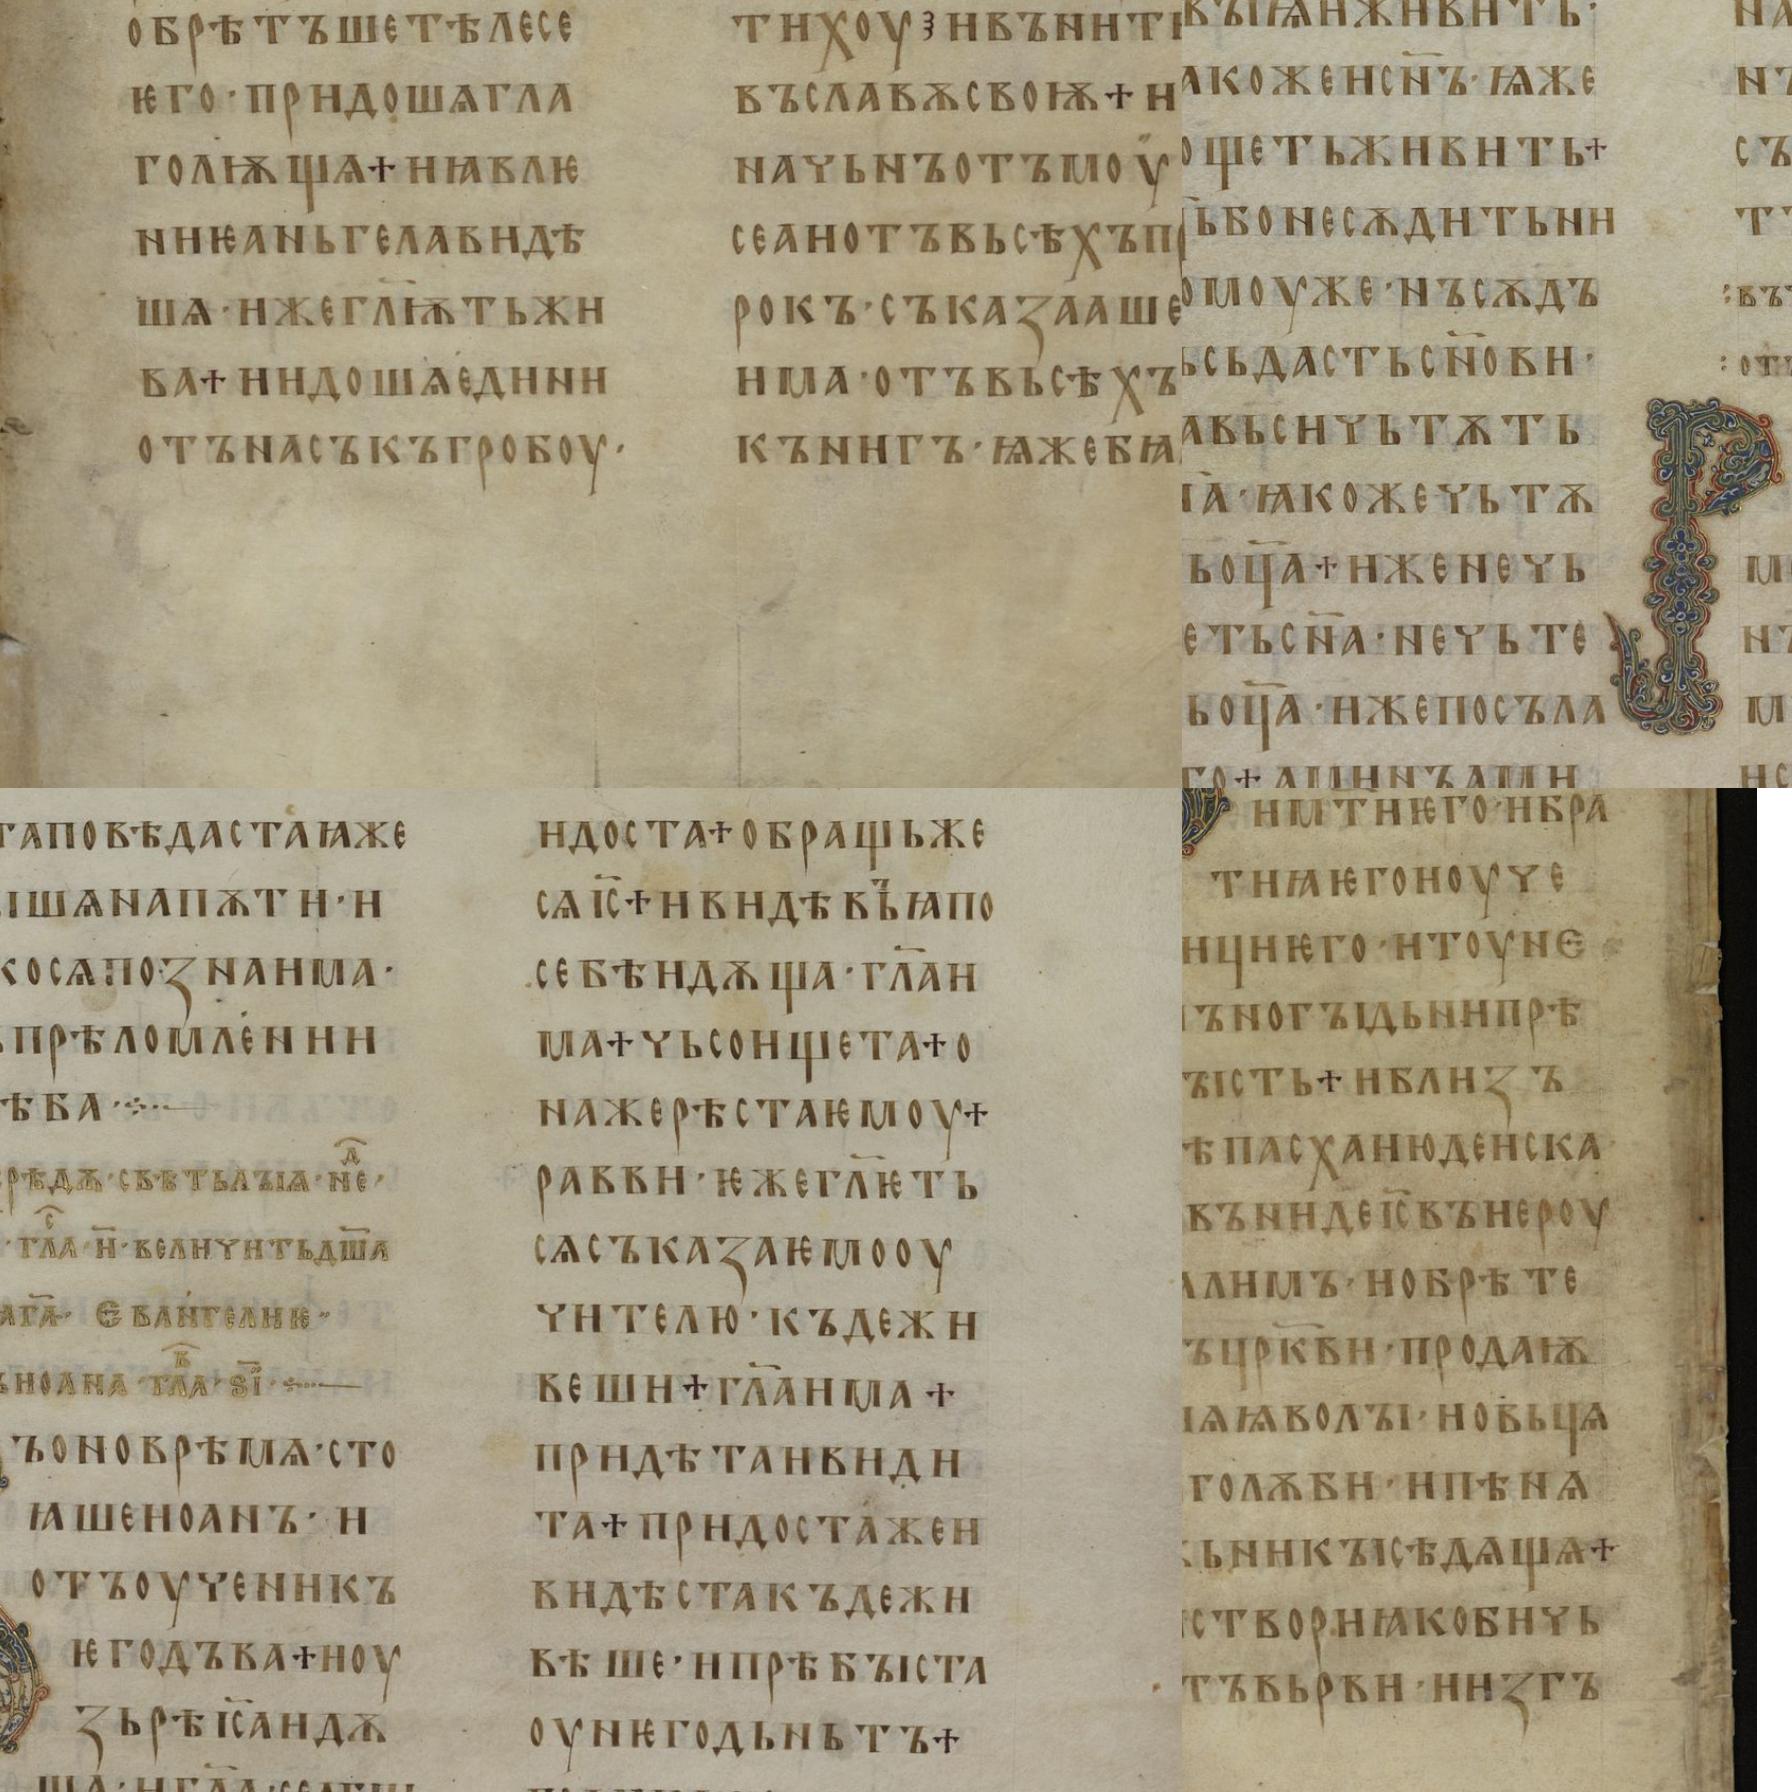 обрѣтъше тѣлесе
ѥго · придошѧ гла
голѭщѧ + и ꙗвлѥ
ниѥ аньгела видѣ
шѧ · иже гл҃ѭть жи
ва + и идошѧ єдини
отъ насъ къ гробоу ·
ти хоу з и вънит
въ славѫ своѭ + и
начьнъ отъ моѵ
сеа и отъ вьсѣхъ п
рокъ · съказааше
има · отъ вьсѣхъ
кънигъ · ꙗже бѣа
ꙑѩ и живить ·
акоже и сн҃ъ · ѩже
ощеть живить +
ь бо не сѫдить ни
омоуже · нъ сѫдъ
ьсь дасть сн҃ови ·
а вьси чьтѫть
а · ꙗкоже чьтѫ
ь оц҃а + иже не чь
еть сн҃а · не чьте
ь оц҃а · иже посъла
го + аминъ амин
на
нъ
съ
тъ
:въ
:отъ
м
нъ
м
нс
та повѣдаста ꙗже
ꙑшѧ на пѫти · и
ко сѧ позна има ·
прѣломлении
ѣба ·
рѣдѫ · свѣтьлꙑѩ · не҃д ·
· гла҃с · и҃ · величить дш҃ѧ
аг҃а · єваньгелиѥ ·
ъ иоана · гл҃ва · ѕ҃і ·
ъ оно врѣмѧ · сто
ꙗше иоанъ · и
отъ оученикъ
ѥго дъва + и оу
зьрѣ іс҃а идѫ
ща · и гл҃а · се агньц
идоста + обращь же
сѧ іс҃ + и видѣ въ ꙗ по
себѣ идѫща · гл҃а и
ма + чьсо ищета + о
на же рѣста ѥмоу +
равви · ѥже гл҃ѥть
сѧ съказаѥмо оу
чителю · къде жи
веши + гл҃а има +
придѣта и види
та + придоста же и
видѣста къде жи
вѣше · и прѣбꙑста
оу ніего дьнь тъ +
и м҃ти ѥго · и бра
тиꙗ ѥго и оуче
ници ѥго · и тоу не
мъногꙑ дьни прѣ
бꙑсть + и близъ
ѣ пасха июдеиска
вънидє іс҃ въ иероу
алимъ · и обрѣте
ъ цр҃кви · продаѭ
ѧѩ волꙑ · и овьцѧ
голѫби · и пѣнѧ
ьникꙑ сѣдѧщѧ +
створи ꙗко бичь
тъ вьрви · и изгъ